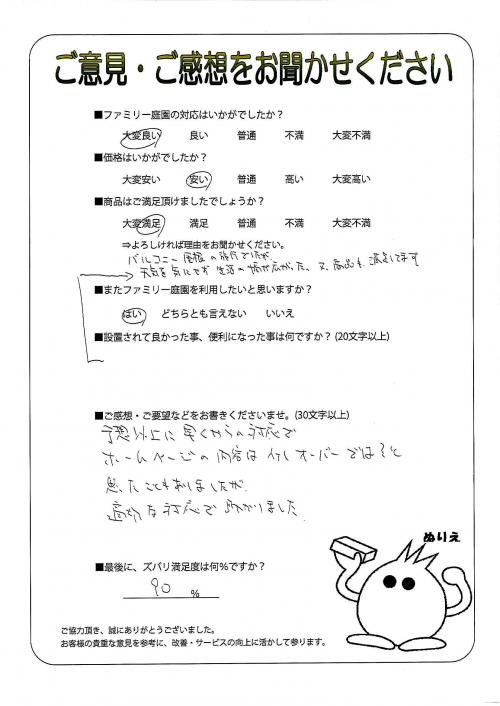 ご意見・ご感想をお聞かせください
■ファミリー庭園の対応はいかがでしたか？
大変良い 良い 普通 不満 大変不満
■価格はいかがでしたか？
大変安い 安い 普通 高い 大変高い
■商品はご満足頂けましたでしょうか？
大変満足 満足 普通 不満 大変不満
⇒よろしければ理由をお聞かせください。
バルコニー屋根の設置でしたが、
天気を気にせず生活の幅が広がった。又、商品も満足してます
■またファミリー庭園を利用したいと思いますか？
はい どちらとも言えない いいえ
■設置されて良かった事、便利になった事は何ですか？(20文字以上)
■ご感想・ご要望などをお書きくださいませ。(30文字以上)
予想以上に早くからの対応で
ホームページの内容は少しオーバーでは？と
思たこともありましたが、
適切な対応で助かりました
ぬりえ
■最後に、ズバリ満足度は何％ですか？
90 ％
ご協力頂き、誠にありがとうございました。
お客様の貴重な意見を参考に、改善・サービスの向上に活かして参ります。